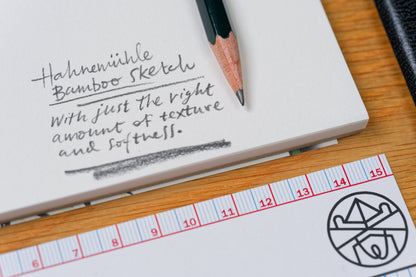 Hahnemühle
Bamboo Sketch
with just the right
amount of texture
and softness.
6 7 8 9 10 11 12 13 14 15